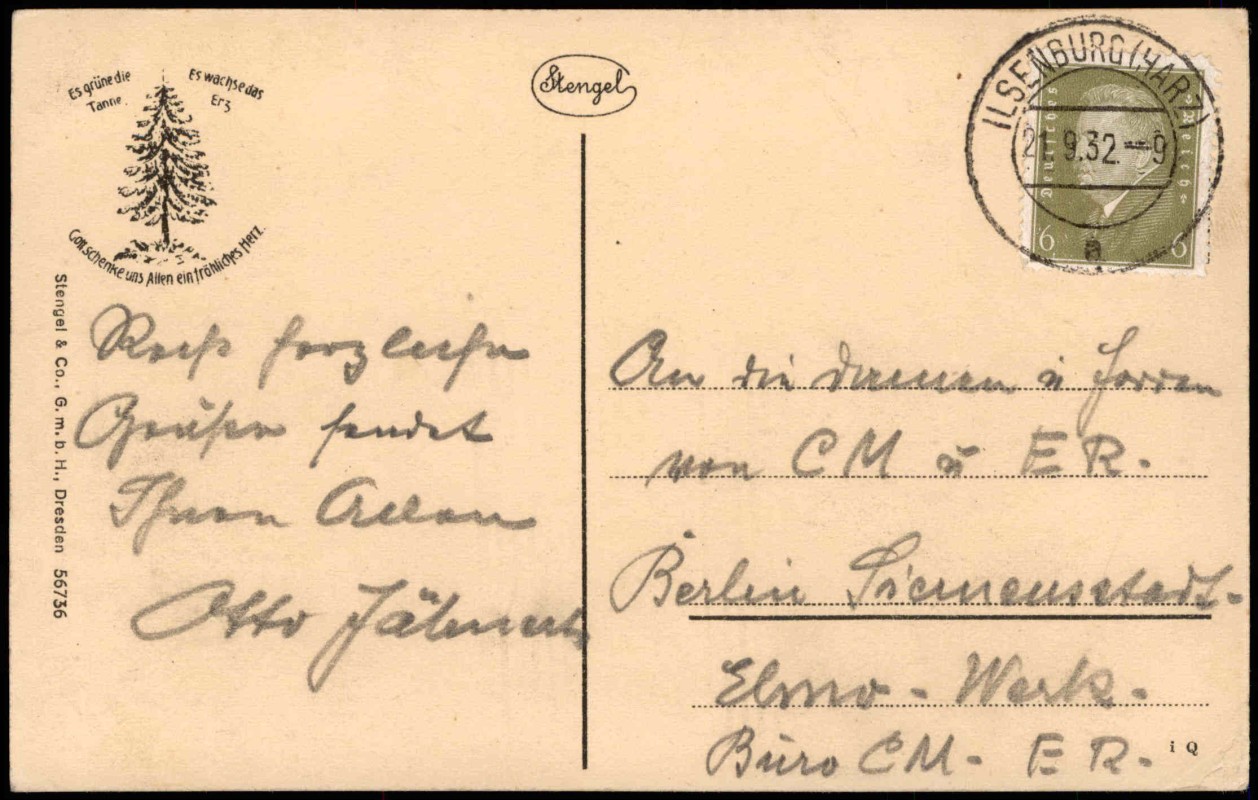 Es grüne die
Tanne.
Es wachse das
Erz
Gott schenke uns Allen ein fröhliches Herz.
Stengel
ILSENBURG (HARZ)
21.9.32.-9
a
Deutsches Reich
6 6
Stengel & Co., G.m.b.H., Dresden 56736
Recht herzliche
Grüße sendet
Ihnen Allen
Otto
An die Damen u Herren
von CM u ER.
Berlin Siemensstadt.
Elmo-Werk.
Büro CM-ER.
i Q